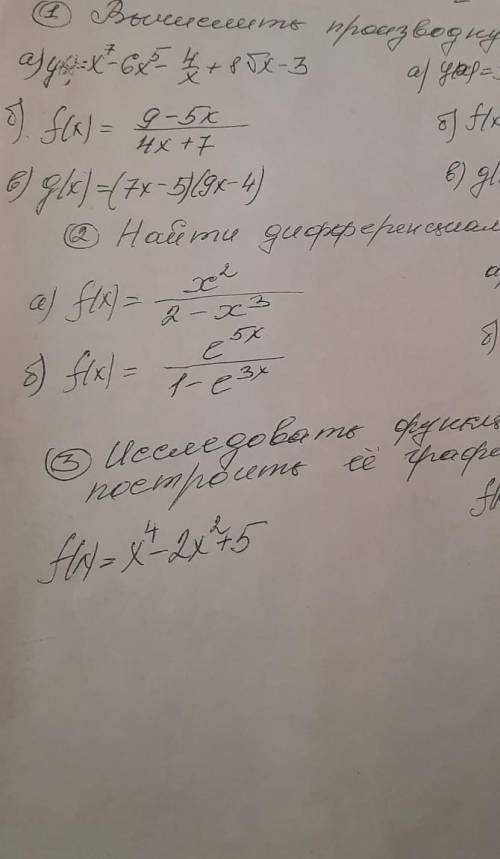 ① Вычислить производну
а) y = x⁷ - 6x⁵ - 4/x + 8√x - 3
а) y(x) =
б) f(x) = (9 - 5x)/(4x + 7)
б) f(x
в) g(x) = (7x - 5)(9x - 4)
в) g(
② Найти дифференциал
а) f(x) = x²/(2 - x³)
а
б) f(x) = e⁵ˣ/(1 - e³ˣ)
б)
③ Исследовать функц
построить её графи
f(
f(x) = x⁴ - 2x² + 5